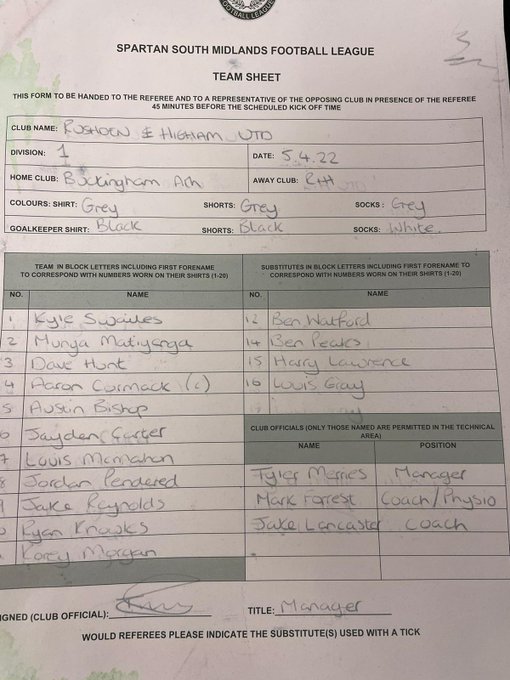 FOOTBALL LEAGUE
3
SPARTAN SOUTH MIDLANDS FOOTBALL LEAGUE
TEAM SHEET
THIS FORM TO BE HANDED TO THE REFEREE AND TO A REPRESENTATIVE OF THE OPPOSING CLUB IN PRESENCE OF THE REFEREE
45 MINUTES BEFORE THE SCHEDULED KICK OFF TIME
CLUB NAME: RUSHDEN & HIGHAM UTD
DIVISION: 1 DATE: 5.4.22
HOME CLUB: Buckingham Ath AWAY CLUB: RHUTD
COLOURS: SHIRT: Grey SHORTS: Grey SOCKS: Grey
GOALKEEPER SHIRT: Black SHORTS: Black SOCKS: White.
TEAM IN BLOCK LETTERS INCLUDING FIRST FORENAME
TO CORRESPOND WITH NUMBERS WORN ON THEIR SHIRTS (1-20)
NO. NAME
1 Kyle Swailes
2 Munya Matiyenga
3 Dave Hunt
4 Aaron Cormack (c)
5 Austin Bishop
6 Jayden Carter
7 Louis Mcmahon
8 Jordan Pendered
9 Jake Reynolds
Ryan Knowles
Korey Morgan
SUBSTITUTES IN BLOCK LETTERS INCLUDING FIRST FORENAME TO
CORRESPOND WITH NUMBERS WORN ON THEIR SHIRTS (1-20)
NO. NAME
12 Ben Watford
14 Ben Peaks
15 Harry Lawrence
16 Louis Gray
CLUB OFFICIALS (ONLY THOSE NAMED ARE PERMITTED IN THE TECHNICAL
AREA)
NAME POSITION
Tyler Merries Manager
Mark Forrest Coach/Physio
Jake Lancaster Coach
IGNED (CLUB OFFICIAL): TITLE: Manager
WOULD REFEREES PLEASE INDICATE THE SUBSTITUTE(S) USED WITH A TICK